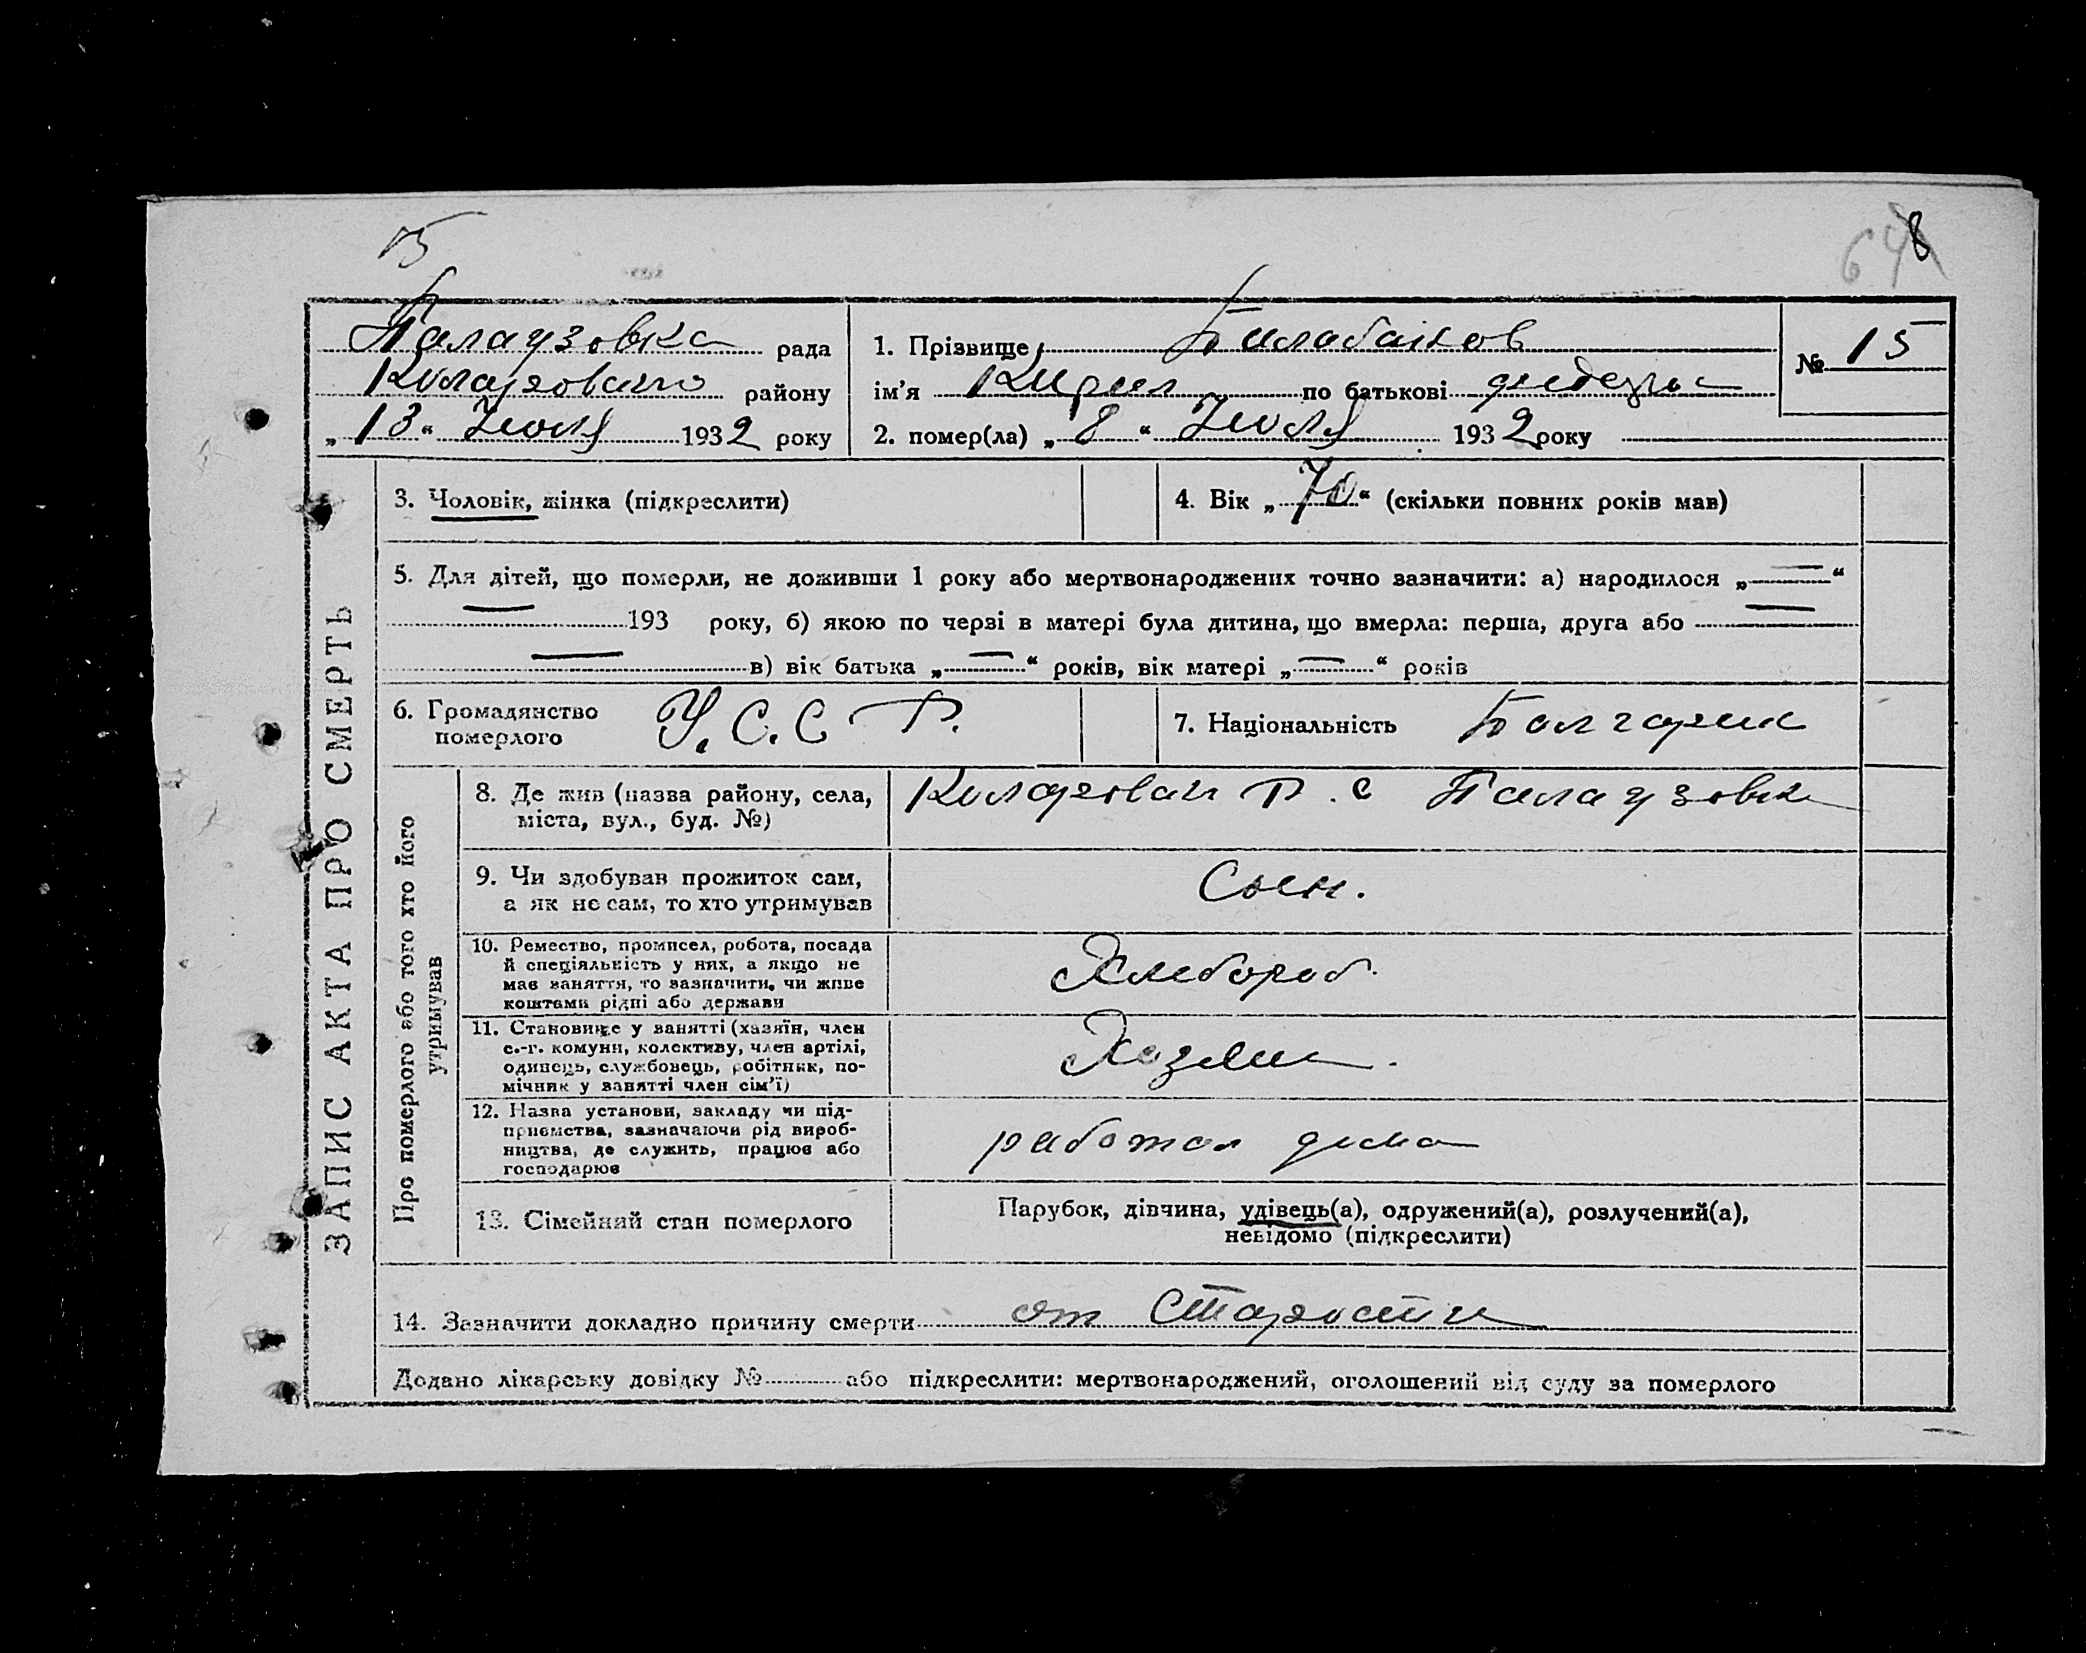 15
8
Палаузовка рада
Коларовского району
„13“ Июля 1932 року
1. Прізвище Балабанов
ім’я Кирил по батькові
2. помер(ла) „8“ Июля 1932 року
№ 15
ЗАПИС АКТА ПРО СМЕРТЬ
3. Чоловік, жінка (підкреслити)
4. Вік „70“ (скільки повних років мав)
5. Для дітей, що померли, не доживши 1 року або мертвонароджених точно зазначити: а) народилося „—“
— 193 року, б) якою по черзі в матері була дитина, що вмерла: перша, друга або —
— в) вік батька „—“ років, вік матері „—“ років
6. Громадянство
померлого
У.С.С.Р.
7. Національність Болгарин
Про померлого або того хто його
утримував
8. Де жив (назва району, села,
міста, вул., буд. №)
Коларован Р. с Палаузовка
9. Чи здобував прожиток сам,
а як не сам, то хто утримував
Сын.
10. Ремество, промисел, робота, посада
й спеціяльність у них, а якщо не
має заняття, то зазначити, чи живе
коштами рідні або держави
Хлебороб.
11. Становище у занятті (хазяїн, член
с.-г. комуни, колективу, член артілі,
одинець, службовець, робітник, по-
мічник у занятті член сім’ї)
Хозяин.
12. Назва установи, закладу чи під-
приємства, зазначаючи рід вироб-
ництва, де служить, працює або
господарює
работал дома
13. Сімейний стан померлого
Парубок, дівчина, удівець(а), одружений(а), розлучений(а),
невідомо (підкреслити)
14. Зазначити докладно причину смерти от старости
Додано лікарську довідку № або підкреслити: мертвонароджений, оголошений від суду за померлого